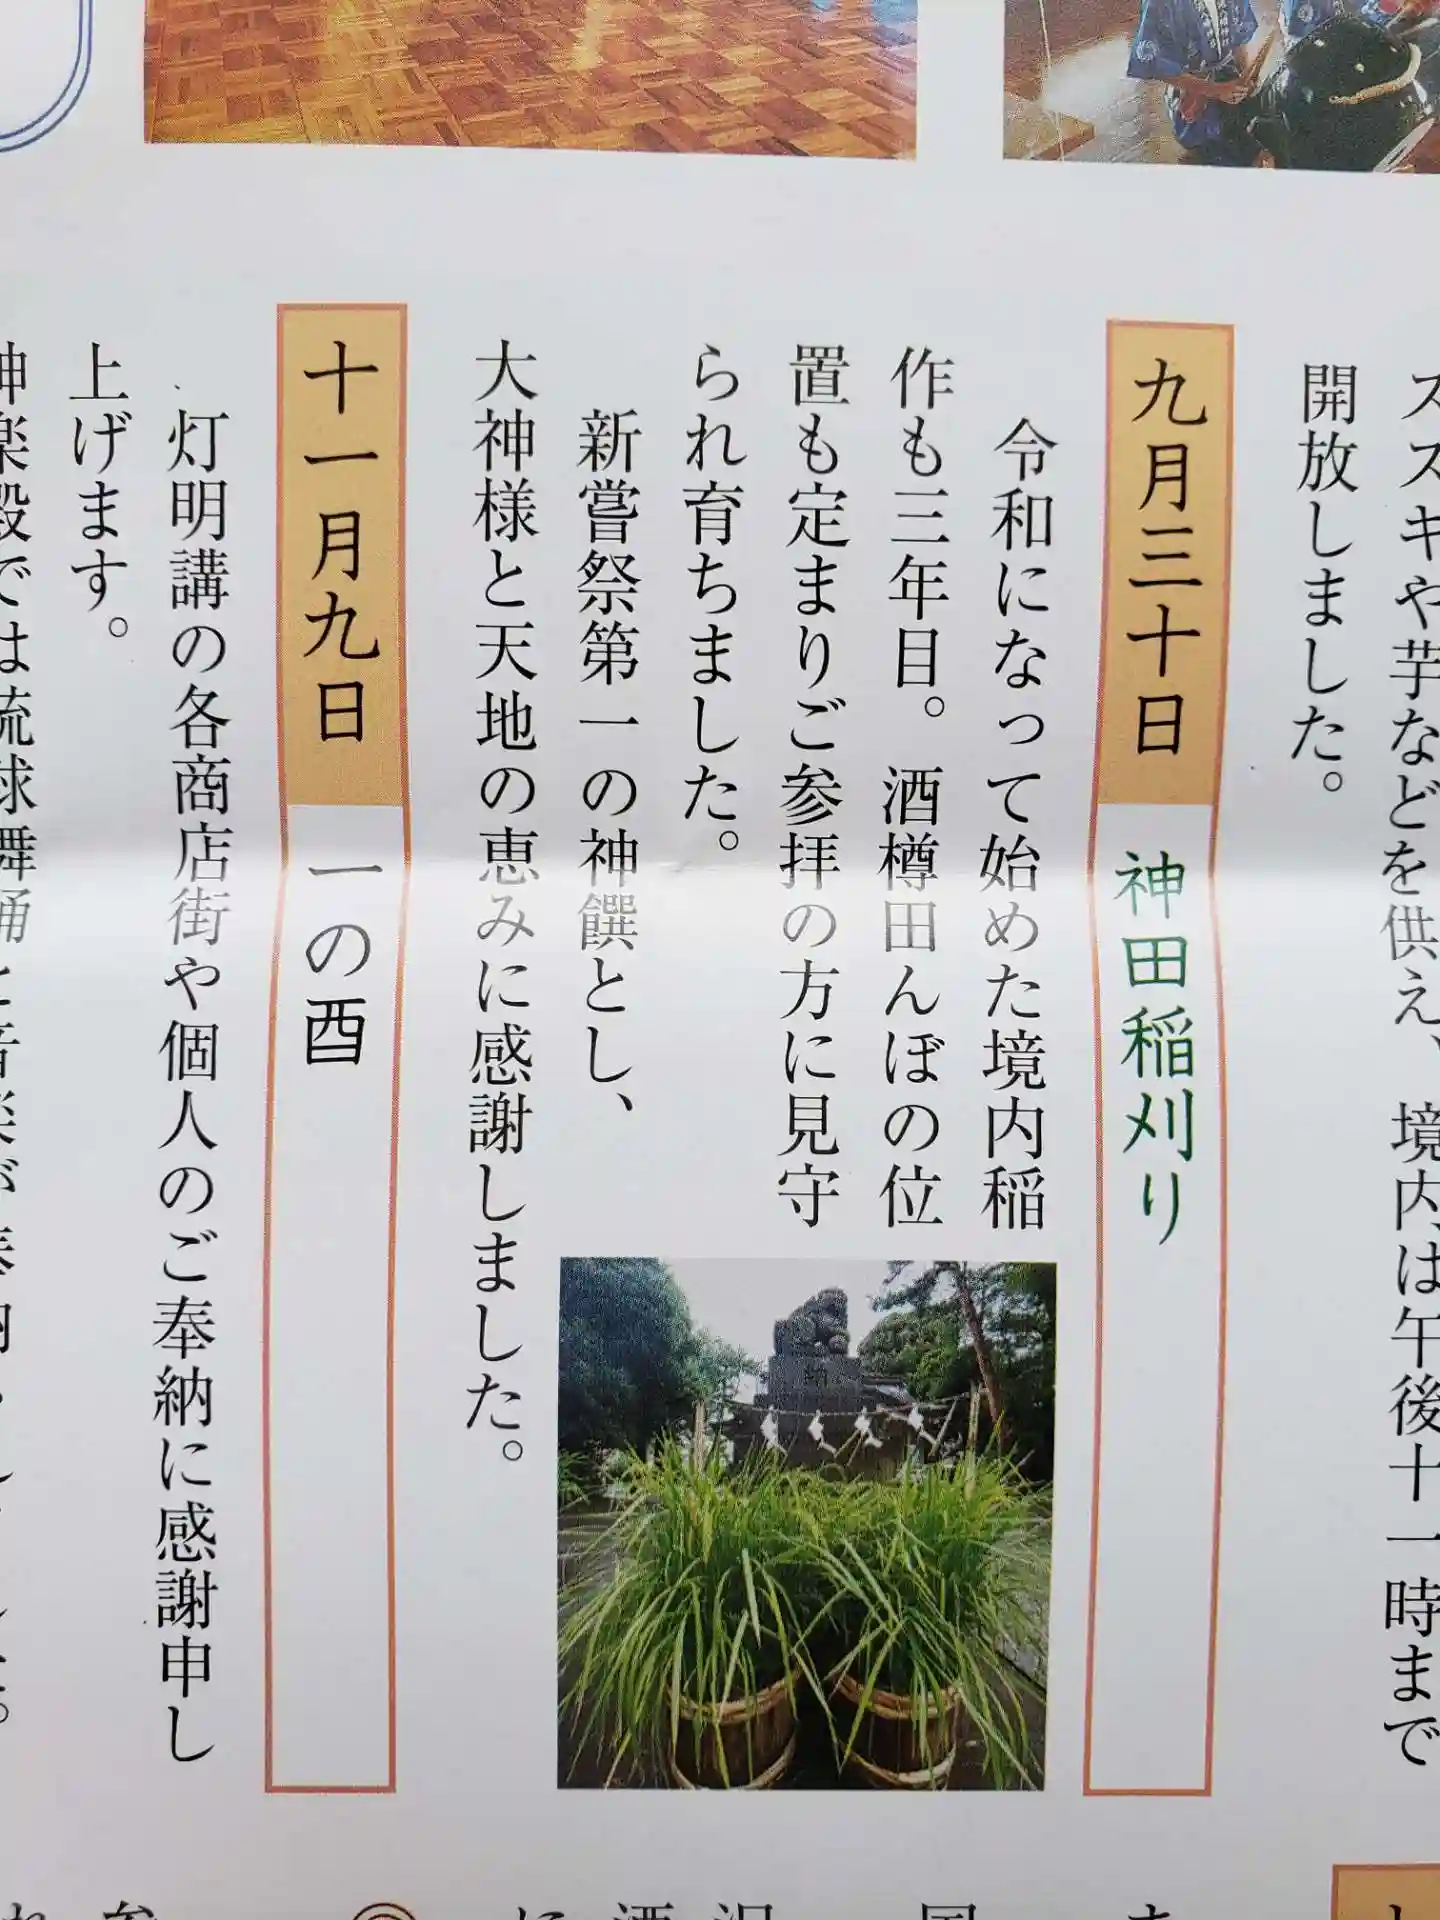 ススキや芋などを供え、境内は午後十一時まで
開放しました。
九月三十日 神田稲刈り
令和になって始めた境内稲
作も三年目。酒樽田んぼの位
置も定まりご参拝の方に見守
られ育ちました。
新嘗祭第一の神饌とし、
大神様と天地の恵みに感謝しました。
納
十一月九日 一の酉
灯明講の各商店街や個人のご奉納に感謝申し
上げます。
神楽殿では琉球舞踊と音楽が奉納